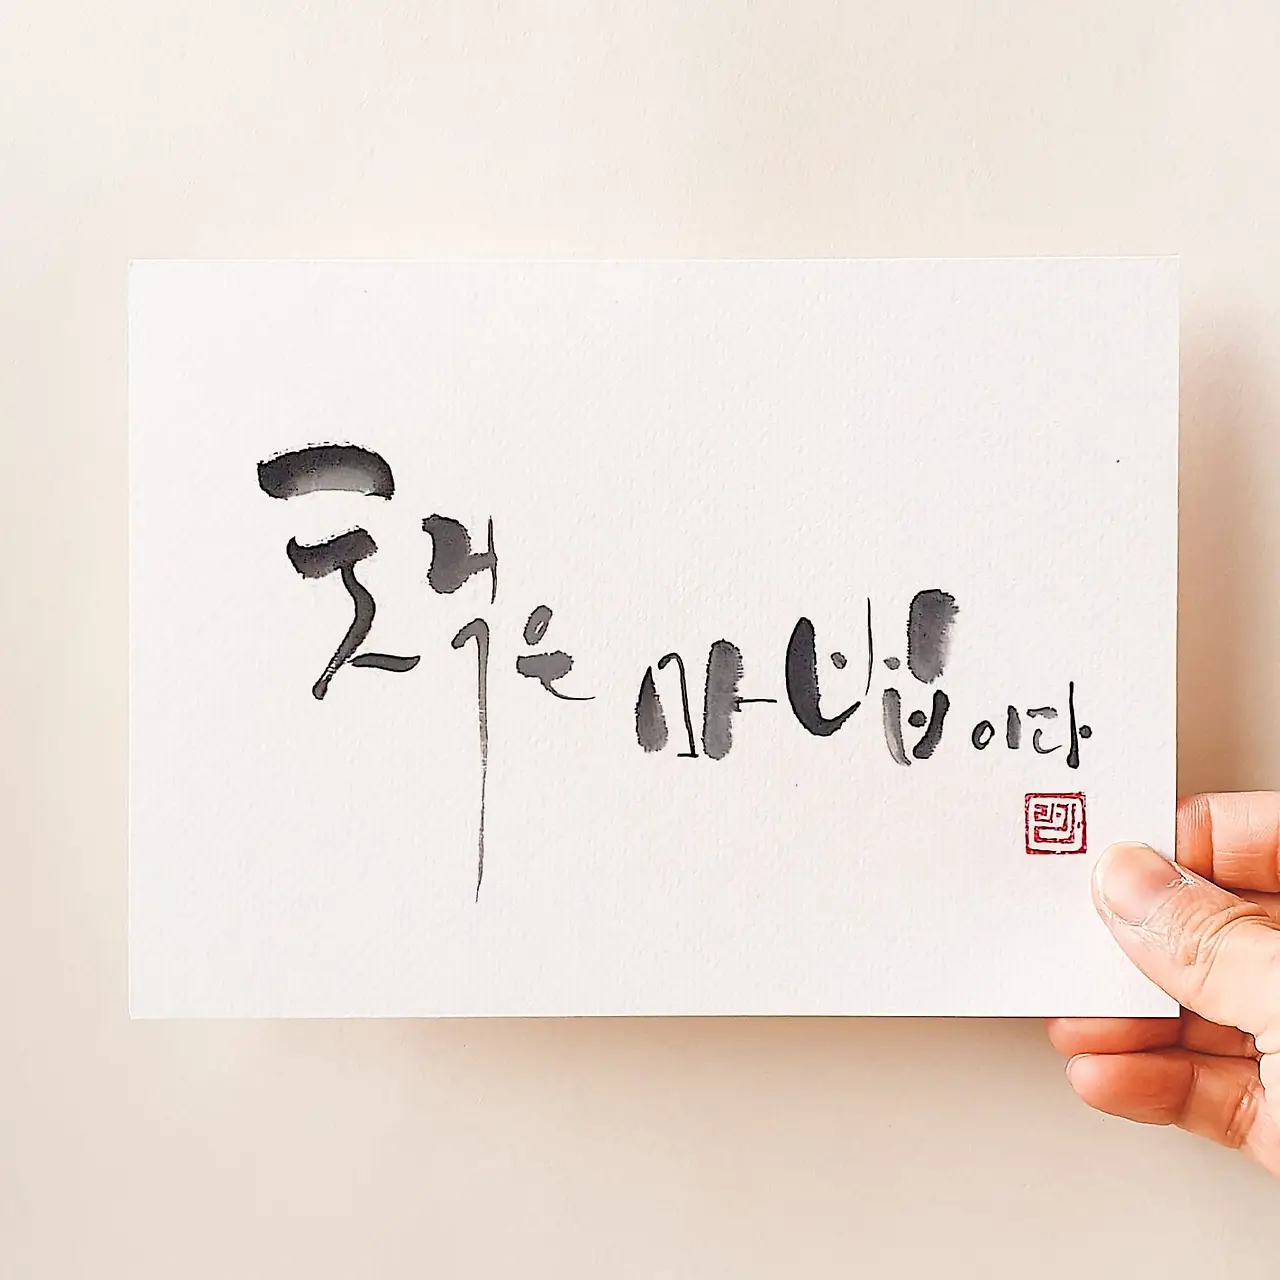 책은 마법이다